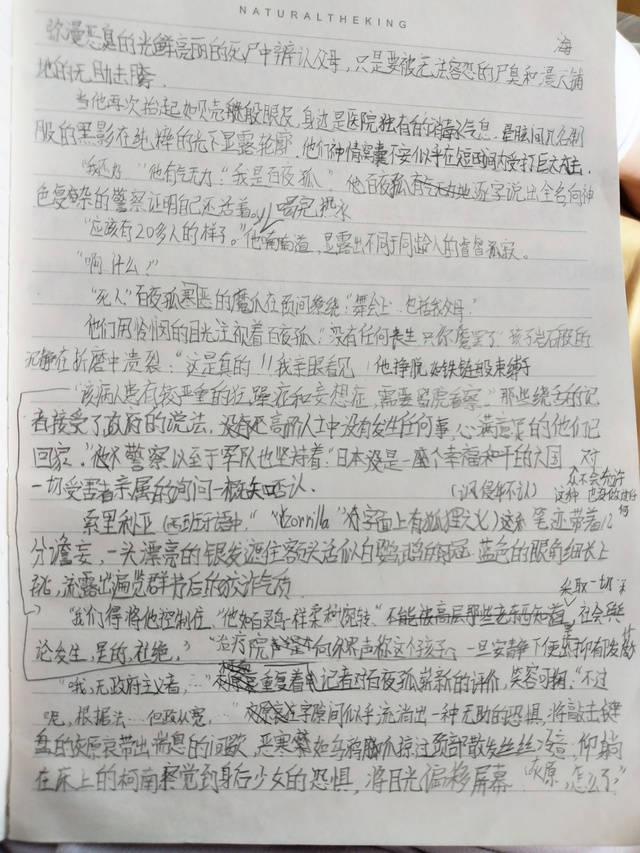 NATURALTHEKING
海
弥漫恶臭的光鲜亮丽的死尸中辨认父母，只是要被无法容忍的尸臭和漫天铺
地的无助击腾．
当他再次抬起如贝壳般眼皮，身边是医院独有的消毒水气息．晕眩间几名制
服的黑影在纯粹的光下显露轮廓．他们神情窘囊不安似乎在短时间内受打巨大攻击．
"我还好．"他有气无力．"我是百夜狐"．他百夜狐有气无力地逐字说出全名向神
色复杂的警察证明自己还活着．喝完热水
"应该有20多人的样子．"他喃喃道，显露出不同于同龄人的睿智孤寂．
"啊，什么？"
"死人"百夜狐寒恶的魔爪在颅间缭绕："舞会上．包括我父母．"
他们用怜悯的目光注视着百夜狐："没有任何丧生只你魔罢了"孩子岩石般的
沉静在折磨中溃裂："这是真的！！我亲眼看见 他挣脱如铁链般束缚
"该病人患有较严重的狂躁症和妄想症，需要留院看察．"那些绕舌的记
者接受了政府的说法．没有还高阶人士中没有发生任何事，心满意足的他们已
回家．"他不警察以至于军队也坚持着："日本没是一座个幸福和平的大国 对
一切受害者亲属的询问一概矢口否认． （讽侵华不认）
索里利亚（西班牙语中，"zorrilla"为字面上有狐狸之义）这么 笔迹带着几
分谵妄，一头漂亮的银发遮住额头活似白鹦鹉的羽冠．蓝色的眼角细长上
挑，流露出遍览群书后的狡诈气质．
采取一切
"我们得将他控制住．"他如百灵鸟一样柔和婉转．"不能被高层那些东西知道，社会舆
论发生，是的，杜绝．" "治疗院向外界声称这个孩子，一旦安静下便
"哦，无政府主义者，…"重复着记者对百夜狐崭新的评价，笑容可掬．"不过
"呃，根据法…但政从宽，…" 在字隙间似乎流淌出一种无助的恐惧，将敲击键
盘的灰原哀带出喘息的间歇．严寒紧如乌鸦脚爪掠过颈部散发丝丝冷意，仰躺
在床上的柯南察觉到身后少女的恐惧，将目光偏移屏幕．"灰原，怎么了？"